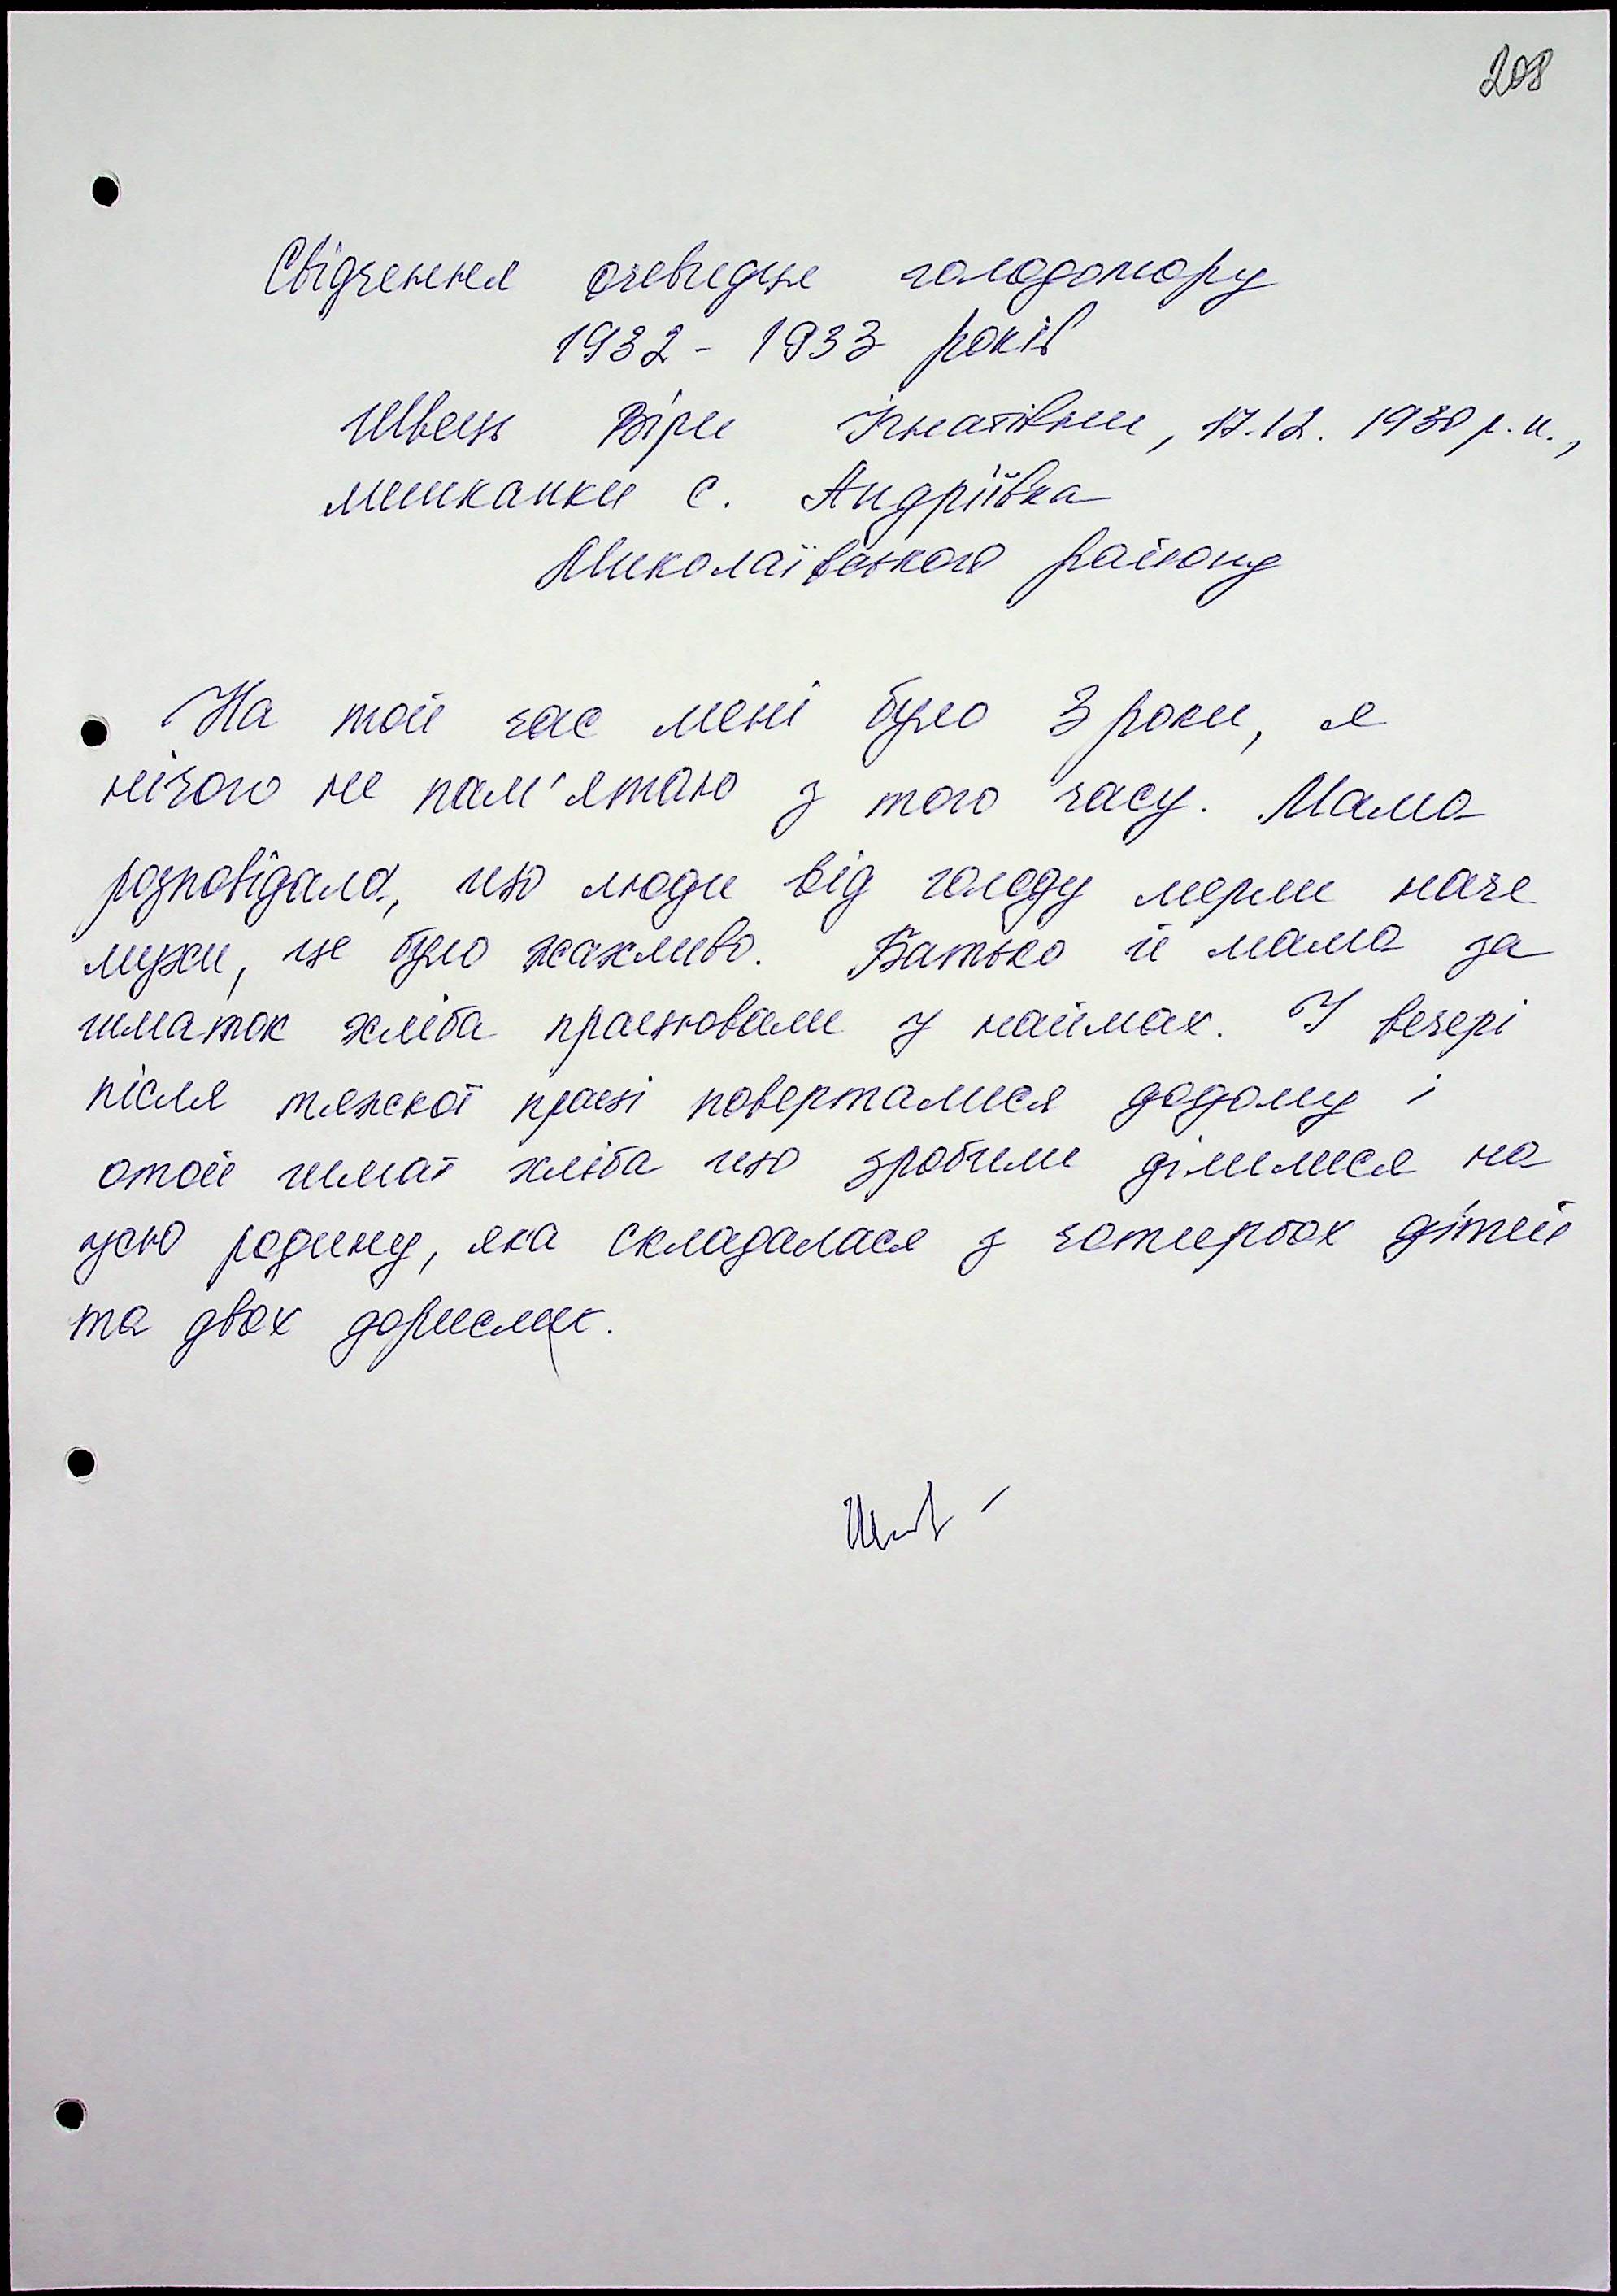 208
Свідчення очевидця голодомору
1932 - 1933 років
Швець Віри Ігнатівни, 17.12. 1930 р.н.,
мешканки с. Андріївка
Миколаївського району
На той час мені було 3 роки, я
нічого не пам'ятаю з того часу. Мама
розповідала, що люди від голоду мерли наче
мухи, це було жахливо. Батько й мама за
шматок хліба працювали у наймах. У вечері
після тяжкої праці поверталися додому і
отой шмат хліба що зробили ділилися на
усю родину, яка складалася з чотирьох дітей
та двох дорислих.